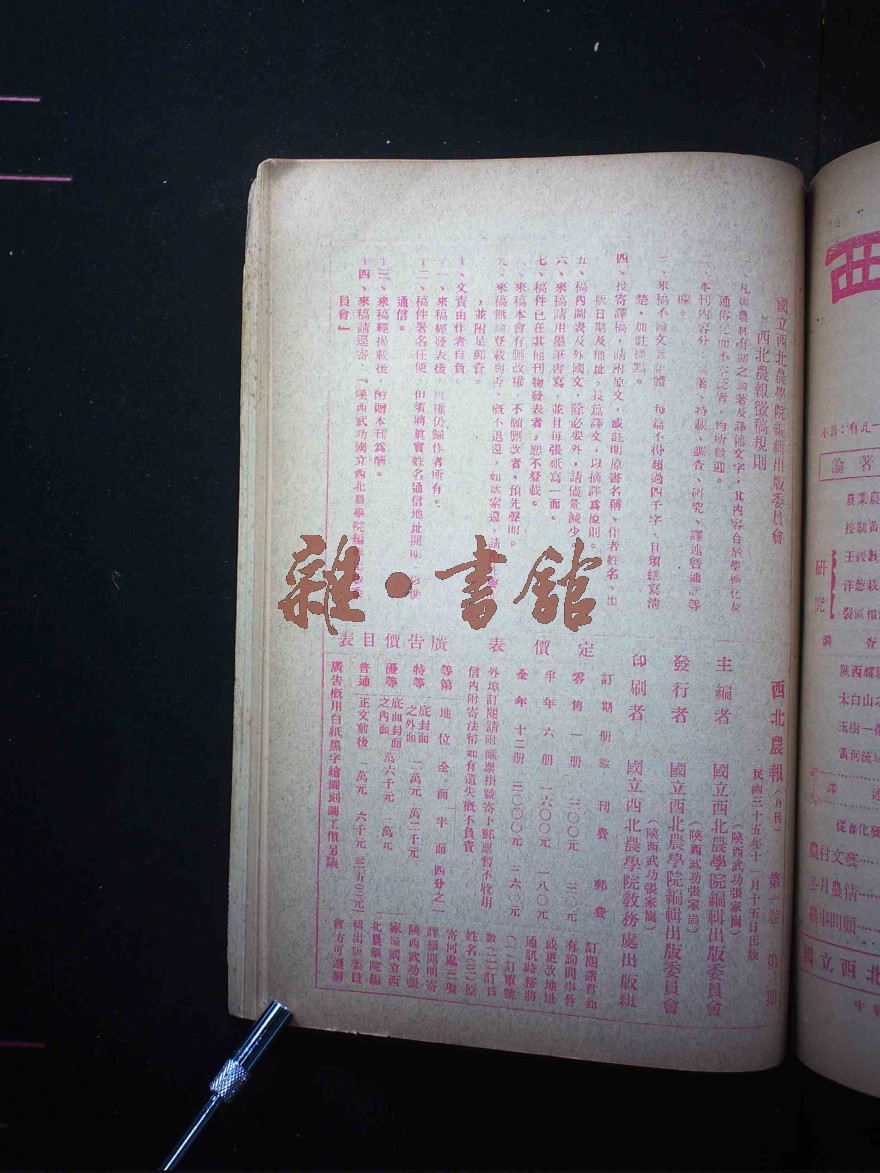 國立西北農學院編輯出版委員會
西北農報徵稿規則
通俗化而不空泛者，均所歡迎。
三、來稿不論文言語體，每篇不得超過四千字，且須繕寫清
楚，加註標點。
四、投寄譯稿，請附原文，或註明原書名稱、作者姓名、出
版日期及他址，長篇譯文，以摘譯爲原則。
五、稿內圖表及外國文，除必要外，請儘量減少
六、來稿請用墨筆書寫，並且每張紙寫一面。
七、稿件已在其他刊物發表者，恕不登載。
八、來稿本會有刪改權，不願刪改者，預先聲明。
九、來稿無論登載與否，概不退還，如欲索還，請
，並附足郵資。
十、文責由作者自負。
十一、來稿經發表後，版權仍歸作者所有。
十二、稿件署名任便，但須將眞實姓名通信地址開明
通信。
十三、來稿經揭載後，酌贈本刊爲酬。
十四、來稿請逕寄，「陝西武功國立西北農學院編
員會」
西北農報（月刊）第一卷 第 期
民國三十五年十一月十五日出版
主編者 國立西北農學院編輯出版委員會
（陝西武功張家崗）
發行者 國立西北農學院編輯出版委員會
（陝西武功張家崗）
印刷者 國立西北農學院教務處出版組
定價表
訂期 册數 刊費 郵費
零售 一册 三〇〇元 三〇元
半年 六册 一六〇〇元 一八〇元
全年 十二册 三〇〇〇元 三六〇元
外埠訂閱請附匯票掛號寄下郵票暫不收用
信內附寄法幣如有遺失概不負責
訂閱諸君如
有詢問事件
或更改地址
通訊時務將
（一）訂單號
數（二）訂戶
姓名（三）原
寄何處三項
詳細開明寄
陝西武功張
家崗國立西
北農學院編
輯出版委員
會方可遵辦
廣告價目表
等第 地位 全面 半面 四分之一
特等 底封面之外面 二萬元 萬二千元
優等 底面封面之內面 萬六千元 一萬元
普通 正文前後 一萬元 六千元 三五〇〇元
廣告概用白紙黑字繪圖刻圖工價另議
雜·書館
論著
研究
農村文藝
冬月農情